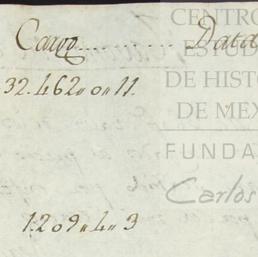 Cargo.............Data
32.462,,0,,11.
1209,,4,,3
CENTRO
ESTUD
DE HISTO
DE MEX
FUNDA
Carlos